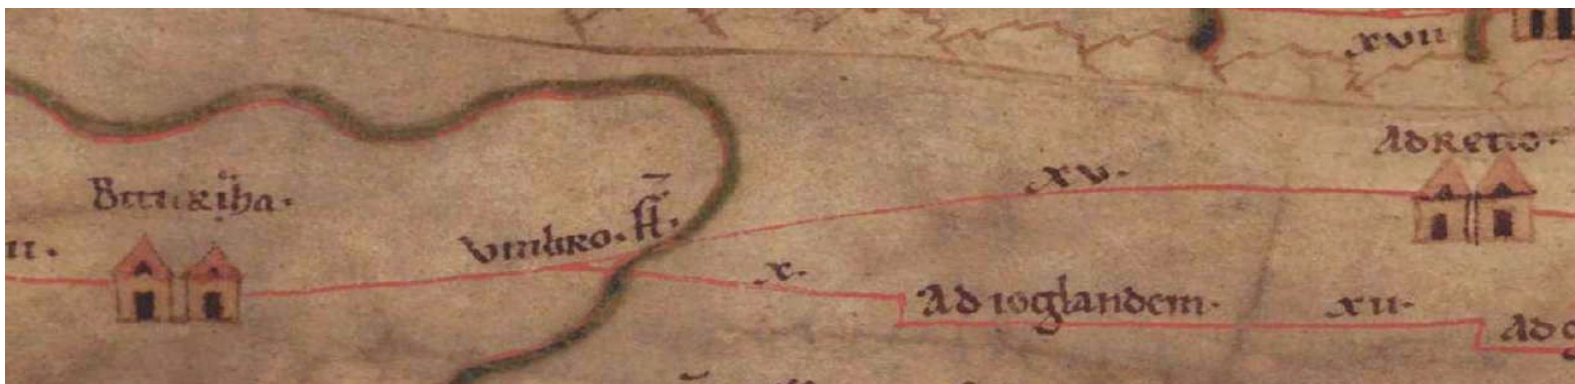 xvii
Adretio.
xv.
Bituriha.
ii.
vmbro. fl.
x.
Ad ioglandem.
xii.
Ad g